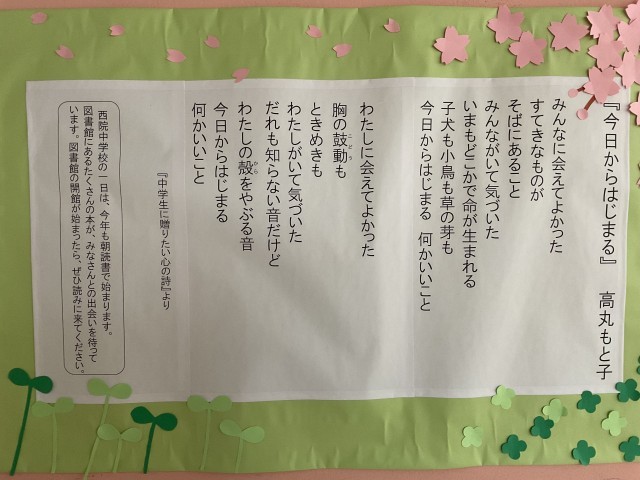 『今日からはじまる』　高丸もと子
みんなに会えてよかった
すてきなものが
そばにあること
みんながいて気づいた
いまもどこかで命が生まれる
子犬も小鳥も草の芽も
今日からはじまる　何かいいこと
わたしに会えてよかった
胸の鼓動も
こどう
ときめきも
わたしがいて気づいた
だれも知らない音だけど
わたしの殻をやぶる音
から
今日からはじまる
何かいいこと
『中学生に贈りたい心の詩』より
西院中学校の一日は、今年も朝読書で始まります。
図書館にあるたくさんの本が、みなさんとの出会いを待って
います。図書館の開館が始まったら、ぜひ読みに来てください。